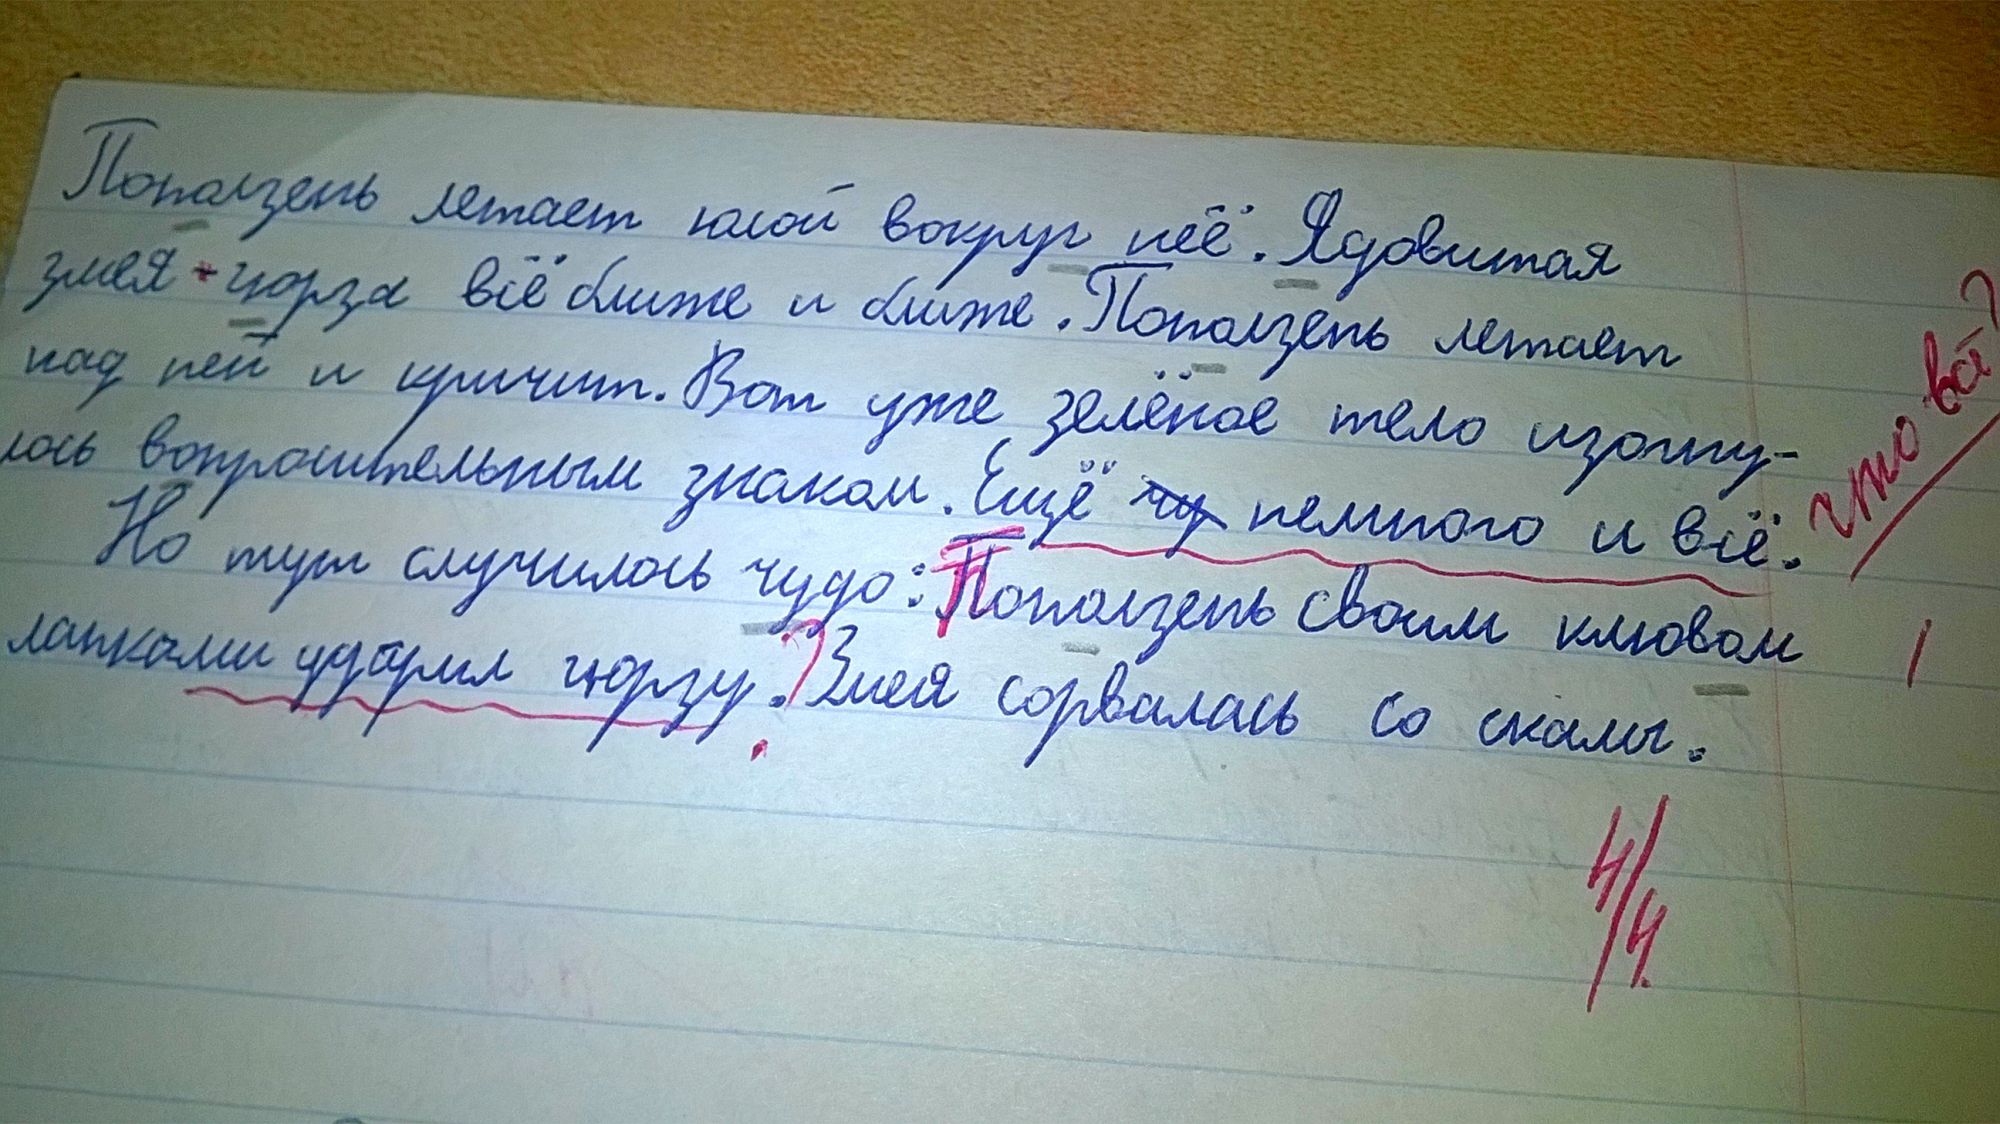 Поползень летает юлой вокруг неё. Ядовитая
змея - гюрза всё ближе и ближе. Поползень летает
над ней и кричит. Вот уже зелёное тело изогну-
лось вопросительным знаком. Ещё чу немного и всё.
что всё?
Но тут случилось чудо: Поползень своим клювом
лапками ударил гюрзу. ? Змея сорвалась со скалы.
4/4.